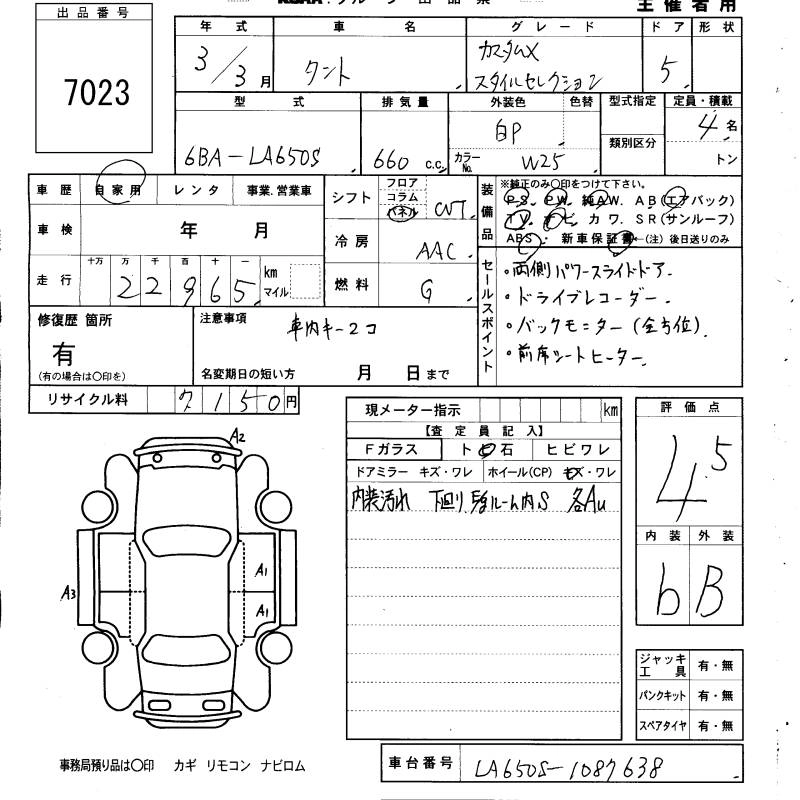 出品番号
7023
主催者用
年式 車名 グレード ドア 形状
3/3月 タント カスタムX スタイルセレクション 5
型式 排気量 外装色 色替 型式指定 定員・積載
6BA-LA650S 660 c.c. 白P 4名
カラーNo. W25 類別区分 トン
車歴 自家用 レンタ 事業.営業車
車検 年 月
走行 十万 万 千 百 十 一 km マイル
22965
シフト フロア コラム パネル CVT
冷房 AAC
燃料 G
装備品 ※純正のみ〇印をつけて下さい。
PS. PW. 純AW. AB(エアバッグ)
TV. ナビ. カワ. SR(サンルーフ)
ABS. 新車保証書←(注)後日送りのみ
セールスポイント
・両側パワースライドドア.
・ドライブレコーダー.
・バックモニター(全方位).
・前席シートヒーター.
修復歴 箇所
有
(有の場合は〇印を)
注意事項 車内キー2コ
名変期日の短い方 月 日まで
リサイクル料 7150円
現メーター指示 km
【査定員記入】
Fガラス ト ビ 石 ヒビワレ
ドアミラー キズ・ワレ ホイール(CP) キズ・ワレ
内装汚れ 下回り, ルーム内S 各AU
評価点
4.5
内装 外装
b B
A2
A1
A3
A1
ジャッキ工具 有・無
パンクキット 有・無
スペアタイヤ 有・無
事務局預り品は〇印 カギ リモコン ナビロム
車台番号 LA650S-1087638